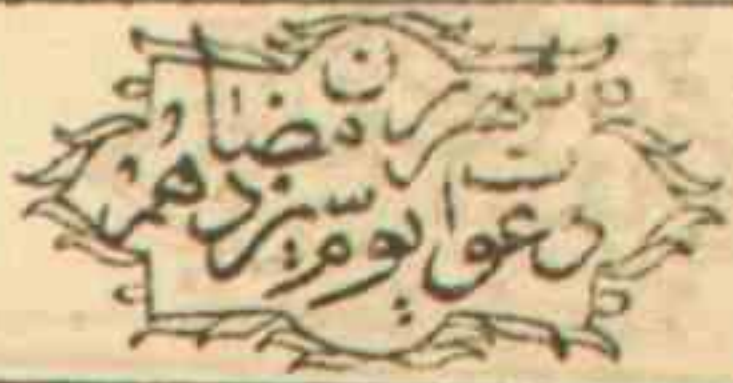 دعوات يوم سيزدهم
شهر رمضان